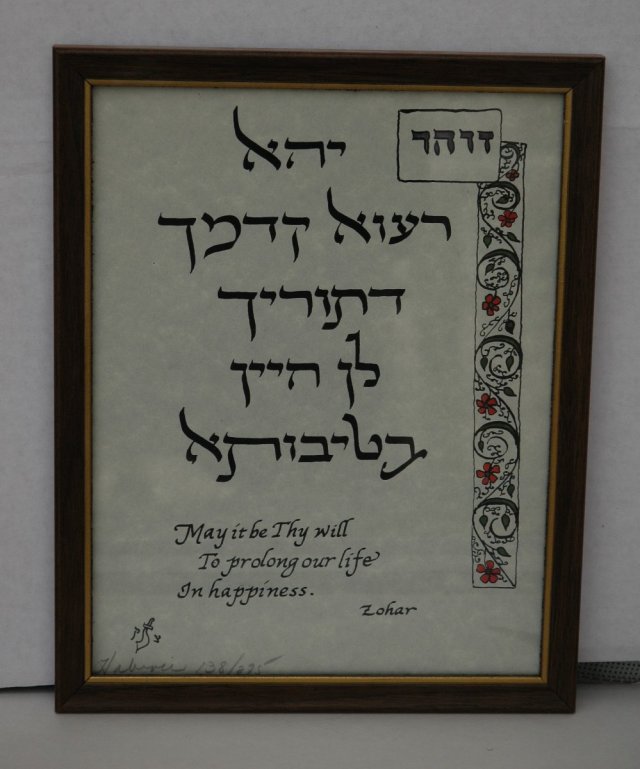 זוהר
יהא
רעוא קדמך
דתוריך
לן חיין
בטיבותא
May it be Thy will
To prolong our life
In happiness.
Zohar
138/225